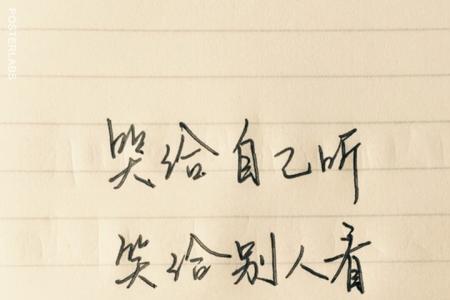 POSTERLABS
哭给自己听
笑给别人看